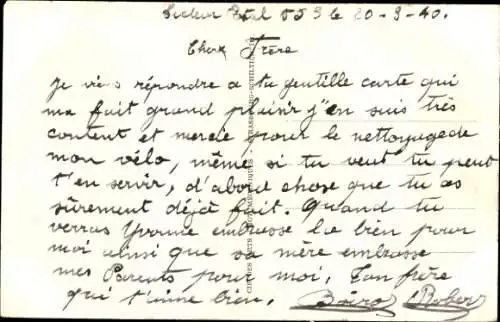 Secteur Postal 559 le 20-3-40.
Cher Frère
Je viens répondre a ta gentille carte qui
ma fait grand plaisir j'en suis très
content et mercie pour le nettoyage de
mon vélo, même si tu veut tu peut
t'en servir, d'abord chose que tu as
sûrement déjà fait. Quand tu
verras Yvonne embrasse la bien pour
moi ainsi que sa mère embrasse
mes Parents pour moi. Ton frère
qui t'aime bien. Robert